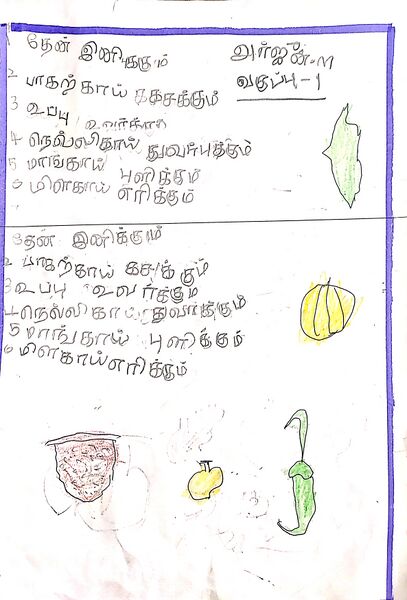 1 தேன் இனிக்கும்
அர்ஜுன்-M
வகுப்பு-1
2 பாகற்காய் கசக்கும்
3 உப்பு உவர்க்கும்
4 நெல்லிகாய் துவர்புக்கும்
5 மாங்காய் புளிக்கும்
6 மிளகாய் எரிக்கும்
தேன் இனிக்கும்
2 பாகற்காய் கசக்கும்
3 உப்பு உவர்க்கும்
4 நெல்லிகாய் துவர்க்கும்
5 மாங்காய் புளிக்கும்
6 மிளகாய் எரிக்கும்